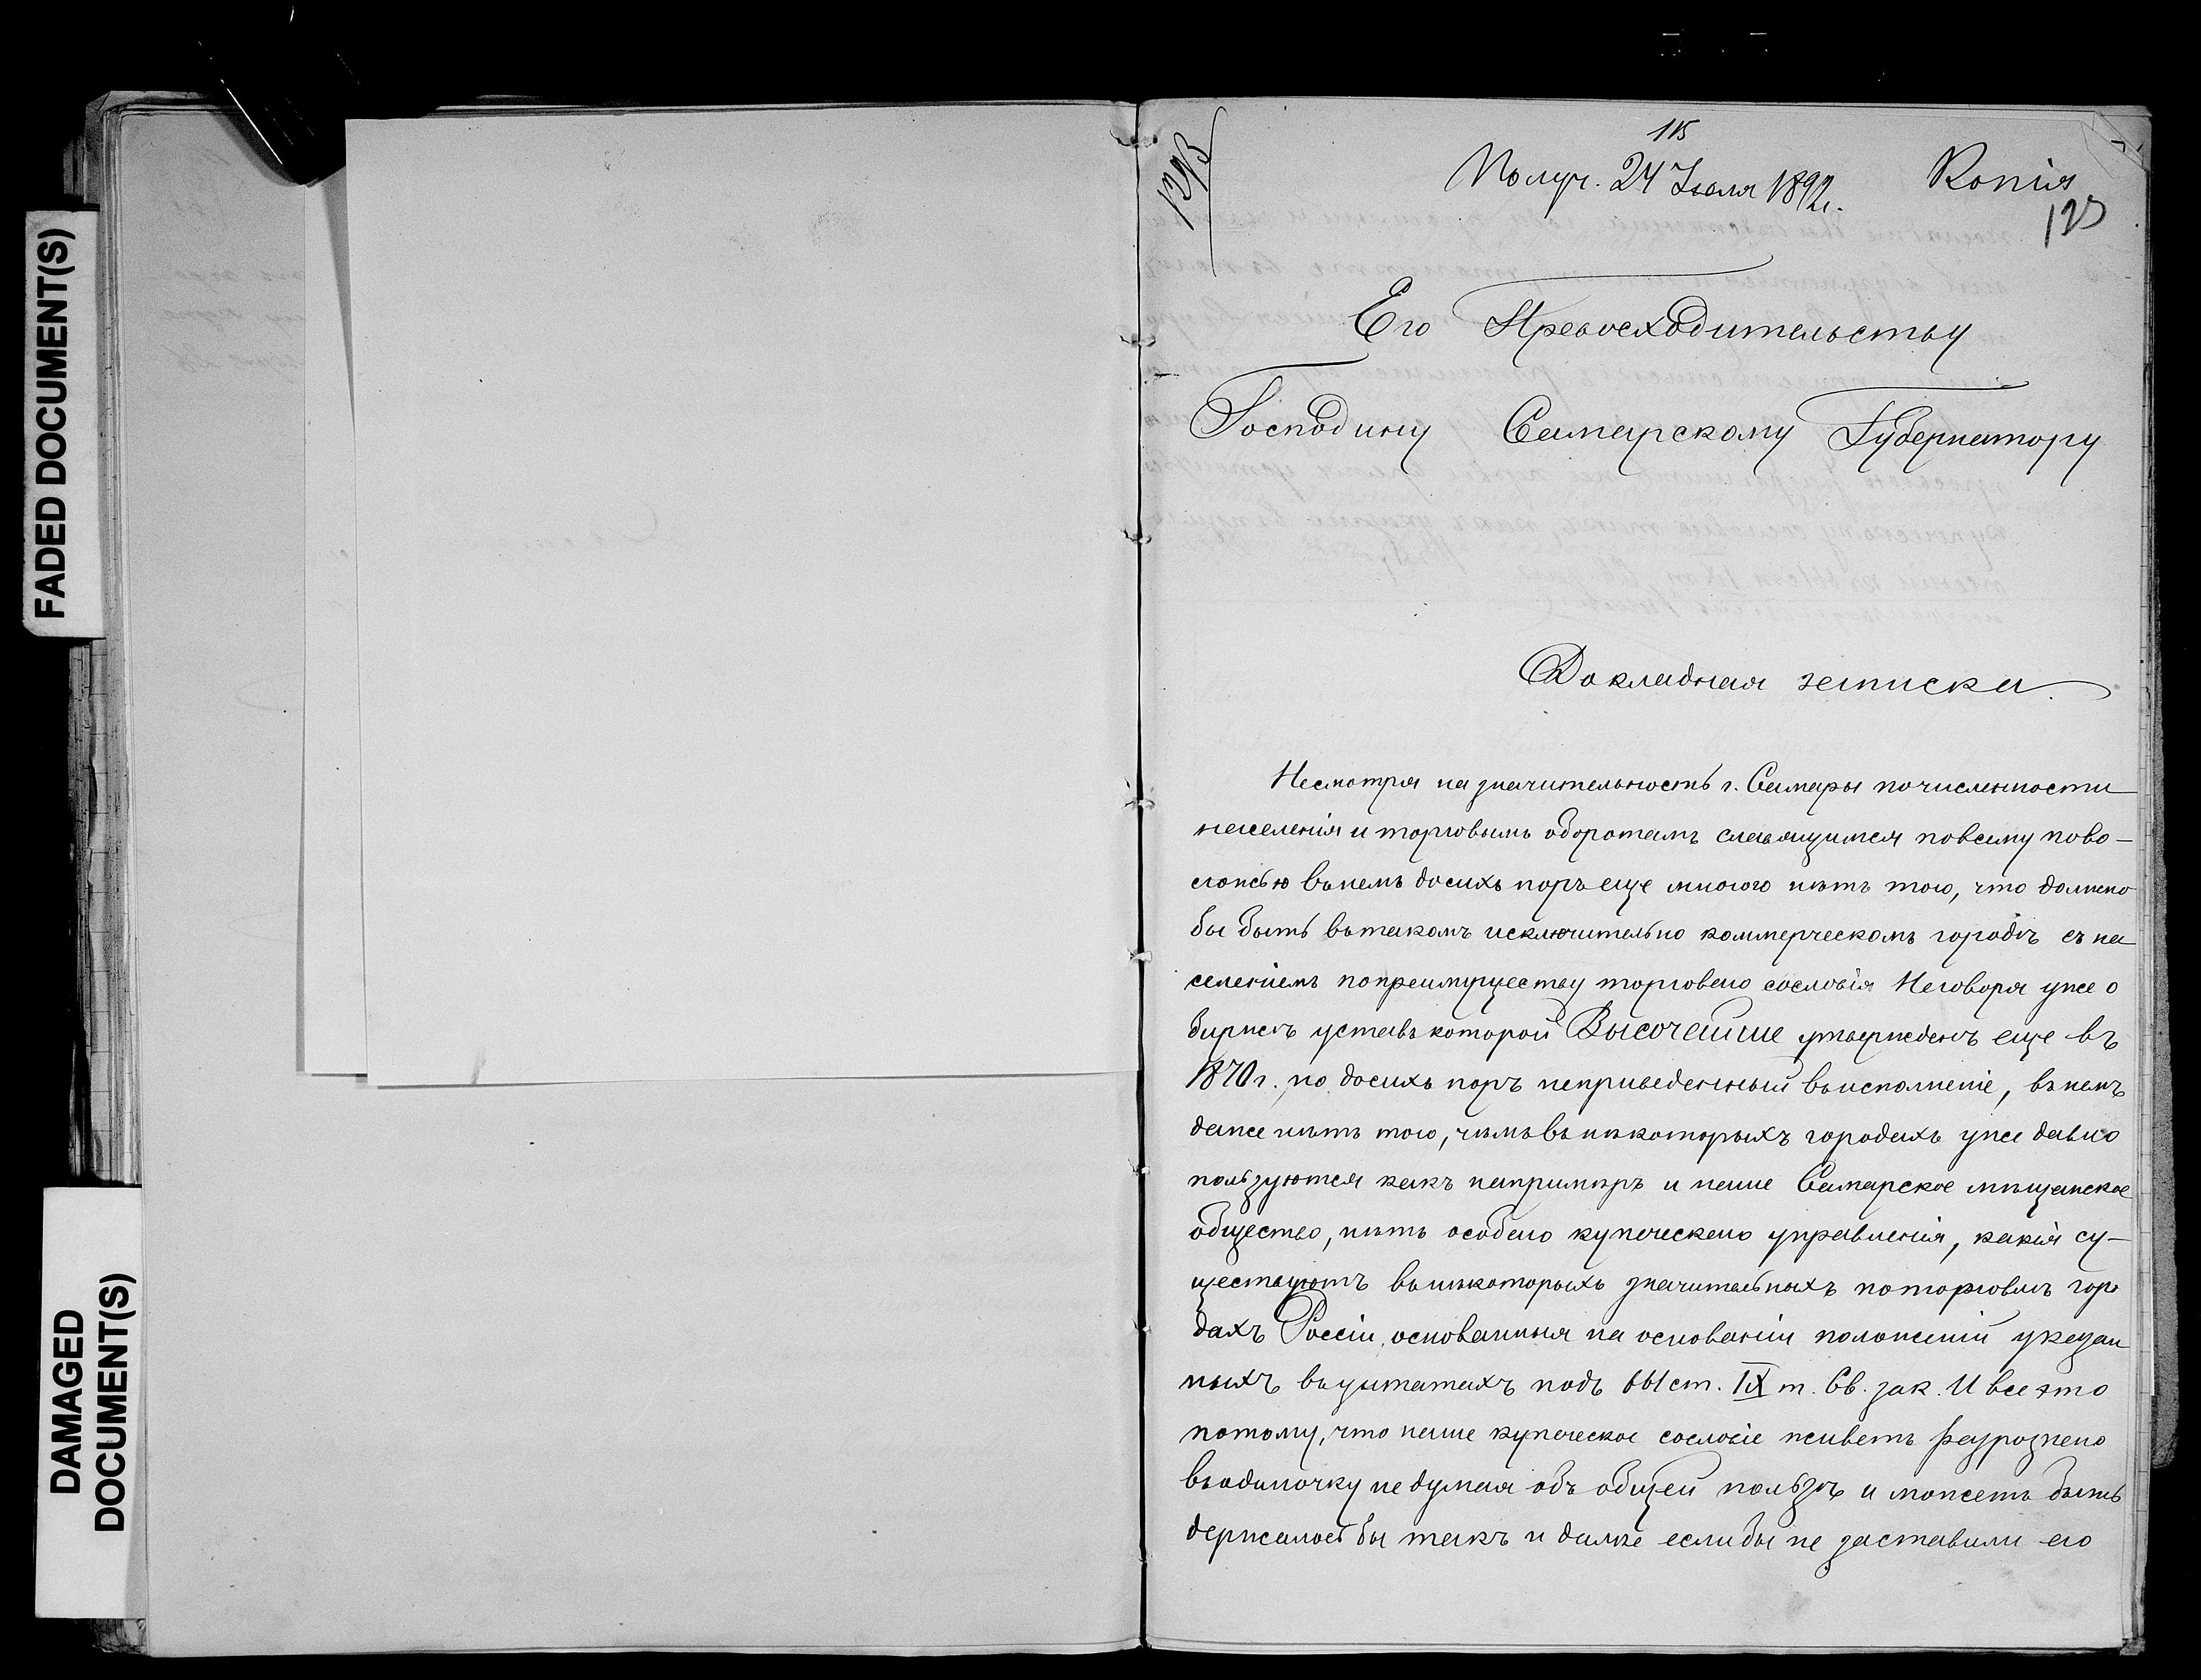 FADED DOCUMENT(S)
DAMAGED
DOCUMENT(S)
115
Получ. 24 Іюля 1892 г.
Копія
123
Его Превосходительству
Господину Самарскому Губернатору
Докладная записка.
Несмотря на значительность г. Самары по численности
населенія и торговымъ оборотамъ славящимся по всему пово-
ложью въ немъ до сихъ поръ еще многого нѣтъ того, что должно
бы быть въ такомъ исключительно коммерческомъ городѣ съ на
селеніемъ по преимуществу торговаго сословія Не говоря уже о
биржѣ уставъ которой Высочайше утвержденъ еще въ
1870 г. но до сихъ поръ неприведенный въ исполненіе, въ немъ
даже нѣтъ того, чѣмъ въ нѣкоторыхъ городахъ уже давно
пользуются какъ напримѣръ и наше Самарское мѣщанское
общество, нѣтъ особаго купеческаго управленія, какія су-
ществуютъ въ нѣкоторыхъ значительныхъ по торговлѣ горо
дахъ Россіи, основанныя на основаніи положеній указан
ныхъ въ цитатахъ подъ 661 ст. IX т. Св. зак. И все это
потому, что наше купеческое сословіе живетъ разрознено
въ одиночку не думая объ общей пользѣ и можетъ быть
держалось бы такъ и далѣе если бы не заставили его